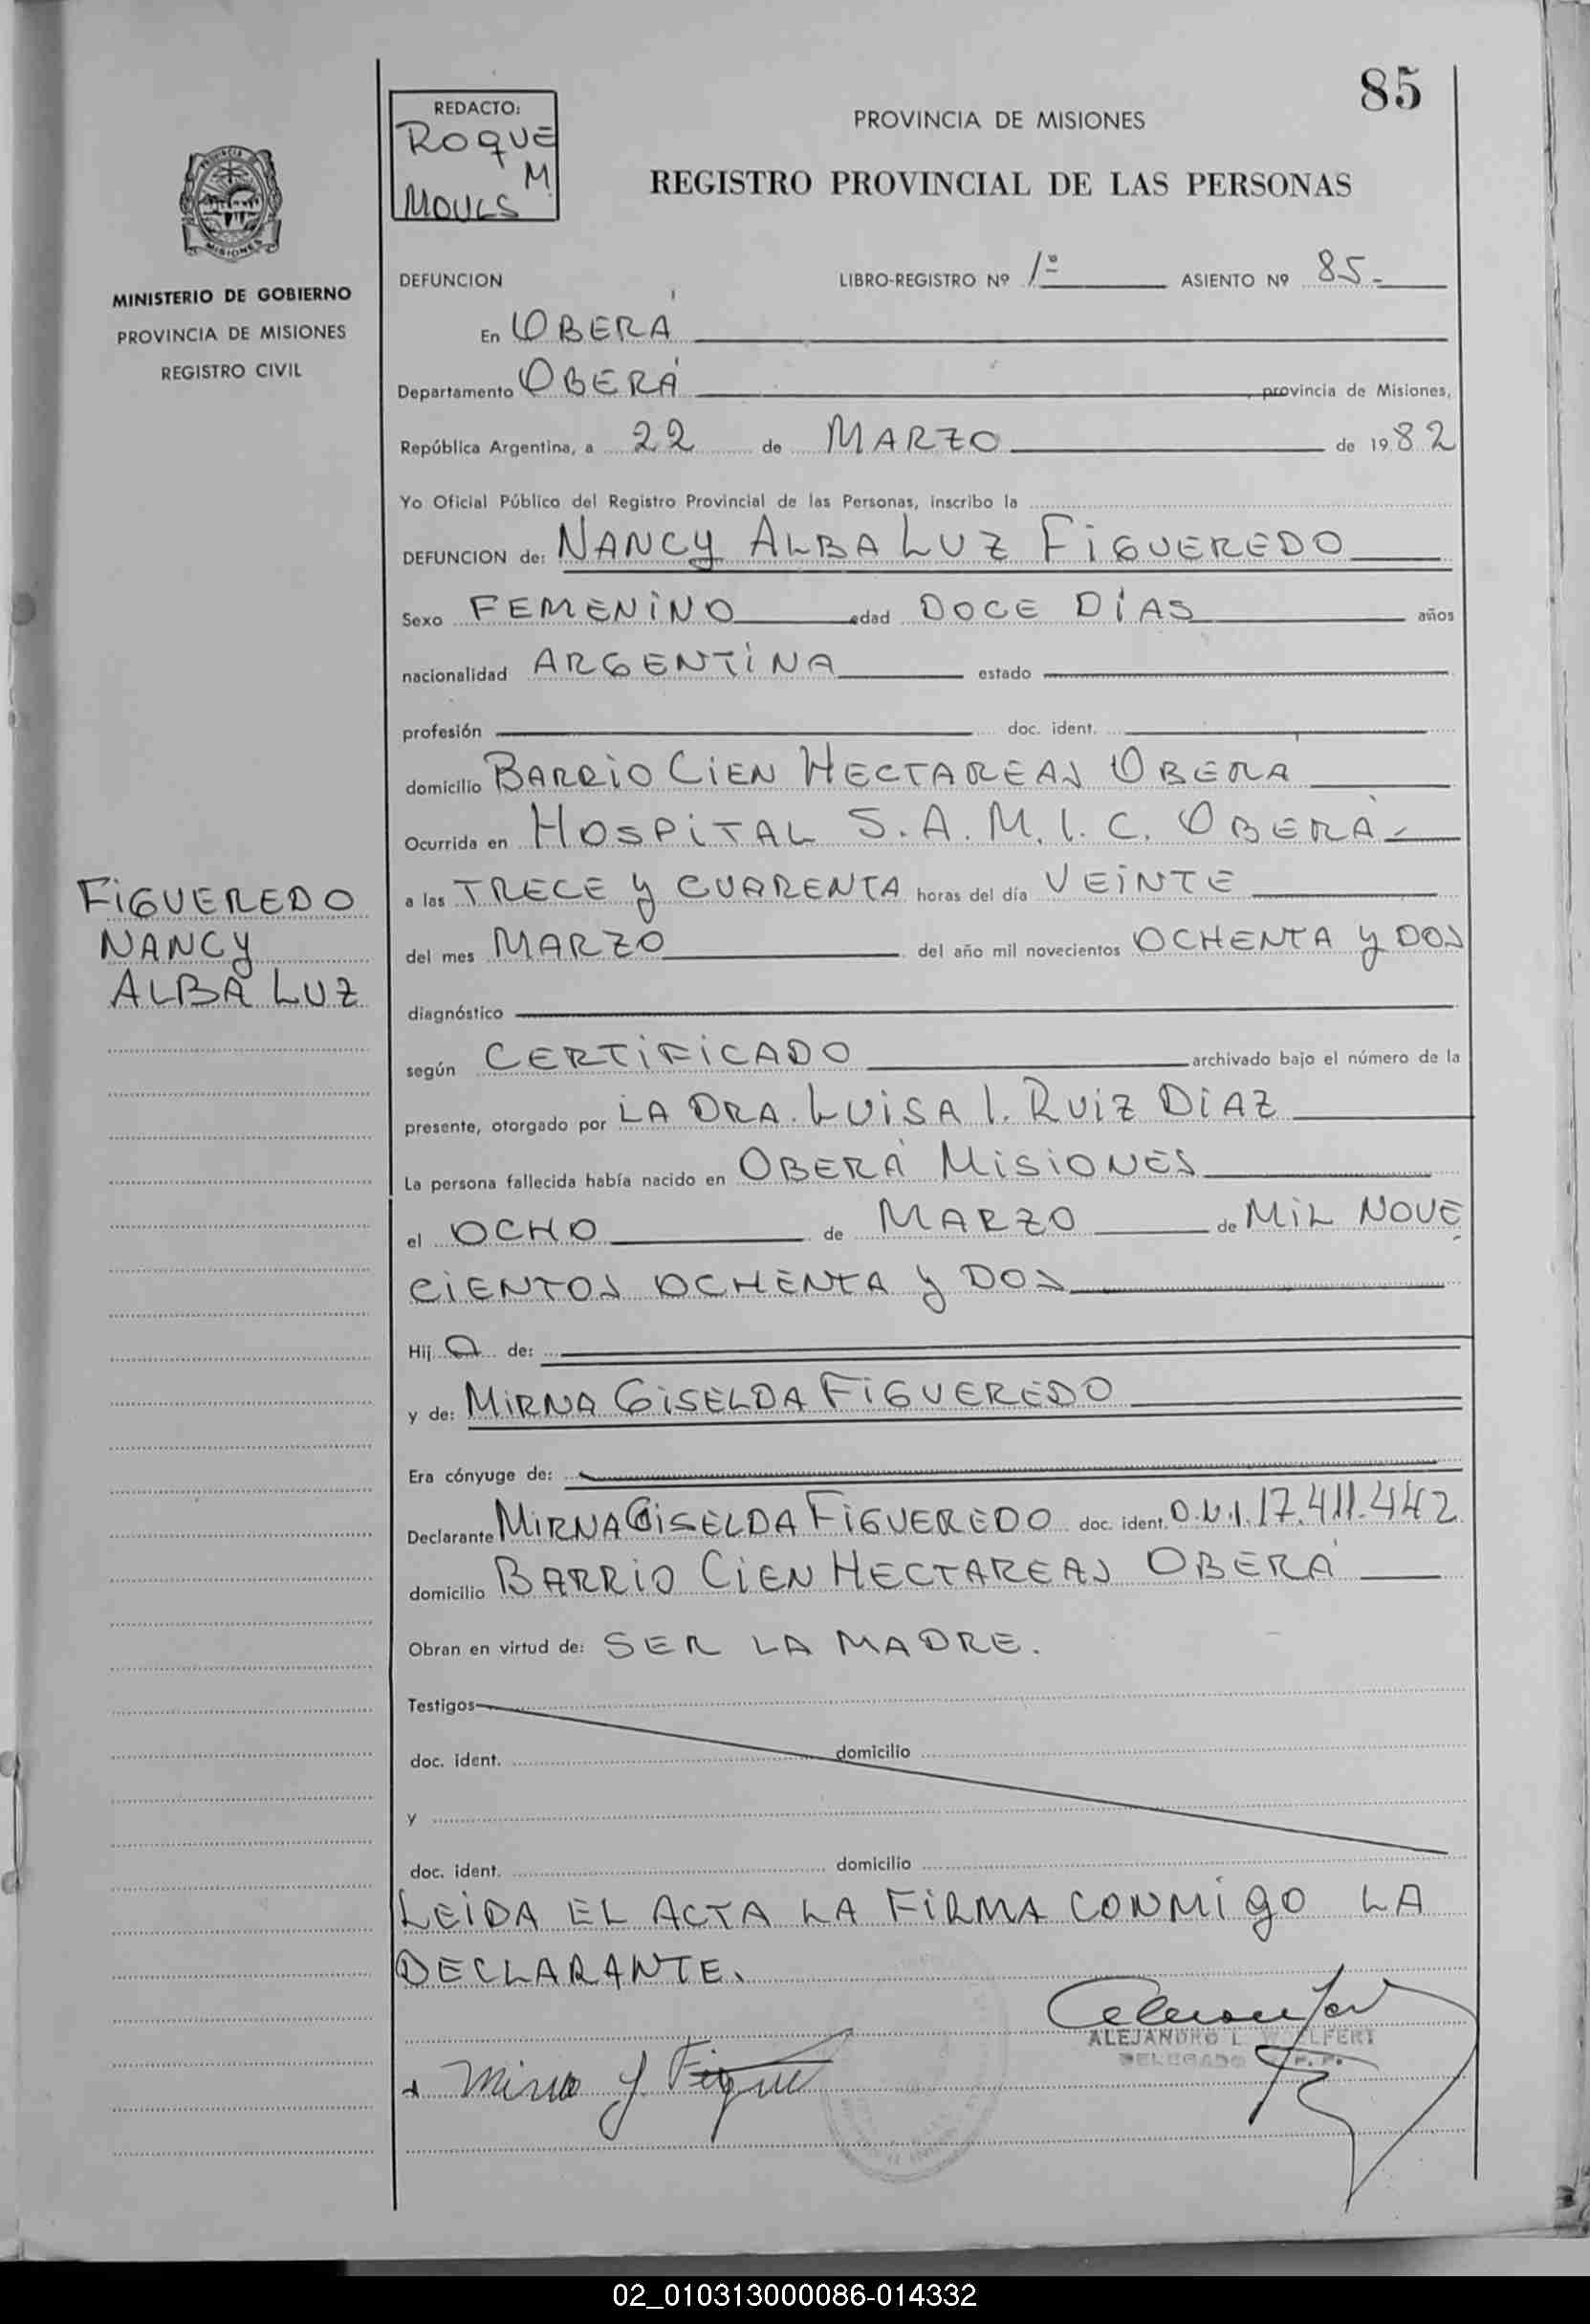 85
REDACTO:
ROQUE
M.
PROVINCIA DE MISIONES
REGISTRO PROVINCIAL DE LAS PERSONAS
PROVINCIA
MISIONES
MINISTERIO DE GOBIERNO
PROVINCIA DE MISIONES
REGISTRO CIVIL
DEFUNCION LIBRO-REGISTRO Nº 1º ASIENTO Nº 85-
En OBERÁ
Departamento OBERÁ, provincia de Misiones,
República Argentina, a 22 de MARZO de 1982
Yo Oficial Público del Registro Provincial de las Personas, inscribo la
DEFUNCION de: NANCY ALBA LUZ FIGUEREDO
Sexo FEMENINO edad DOCE DÍAS años
nacionalidad ARGENTINA estado
profesión doc. ident.
domicilio BARRIO CIEN HECTAREAS OBERA
Ocurrida en HOSPITAL S.A.M.I.C. OBERÁ-
a las TRECE Y CUARENTA horas del día VEINTE
del mes MARZO del año mil novecientos OCHENTA Y DOS
FIGUEREDO
NANCY
ALBA LUZ
diagnóstico
según CERTIFICADO archivado bajo el número de la
presente, otorgado por LA DRA. LUISA I. RUIZ DIAZ
La persona fallecida había nacido en OBERÁ MISIONES
el OCHO de MARZO de MIL NOVE
CIENTOS OCHENTA Y DOS
Hij A de:
y de: MIRNA GISELDA FIGUEREDO
Era cónyuge de:
Declarante MIRNA GISELDA FIGUEREDO doc. ident. D.N.I. 17.411.442
domicilio BARRIO CIEN HECTAREAS OBERÁ
Obran en virtud de: SER LA MADRE.
Testigos
doc. ident. domicilio
y
doc. ident. domicilio
LEIDA EL ACTA LA FIRMA CONMIGO LA
DECLARANTE.
ALEJANDRO L. WOELFERT
DELEGADO R.P.P.
02_010313000086-014332